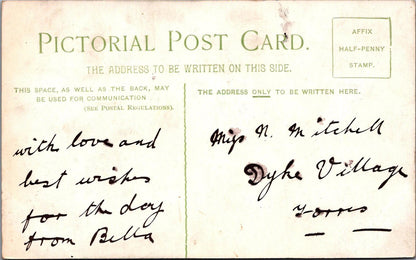 PICTORIAL POST CARD.
THE ADDRESS TO BE WRITTEN ON THIS SIDE.
AFFIX
HALF-PENNY
STAMP.
THIS SPACE, AS WELL AS THE BACK, MAY
BE USED FOR COMMUNICATION
(SEE POSTAL REGULATIONS).
with love and
best wishes
for the day
from Bella
THE ADDRESS ONLY TO BE WRITTEN HERE.
Miss N. Mitchell
Dyke Village
Forres